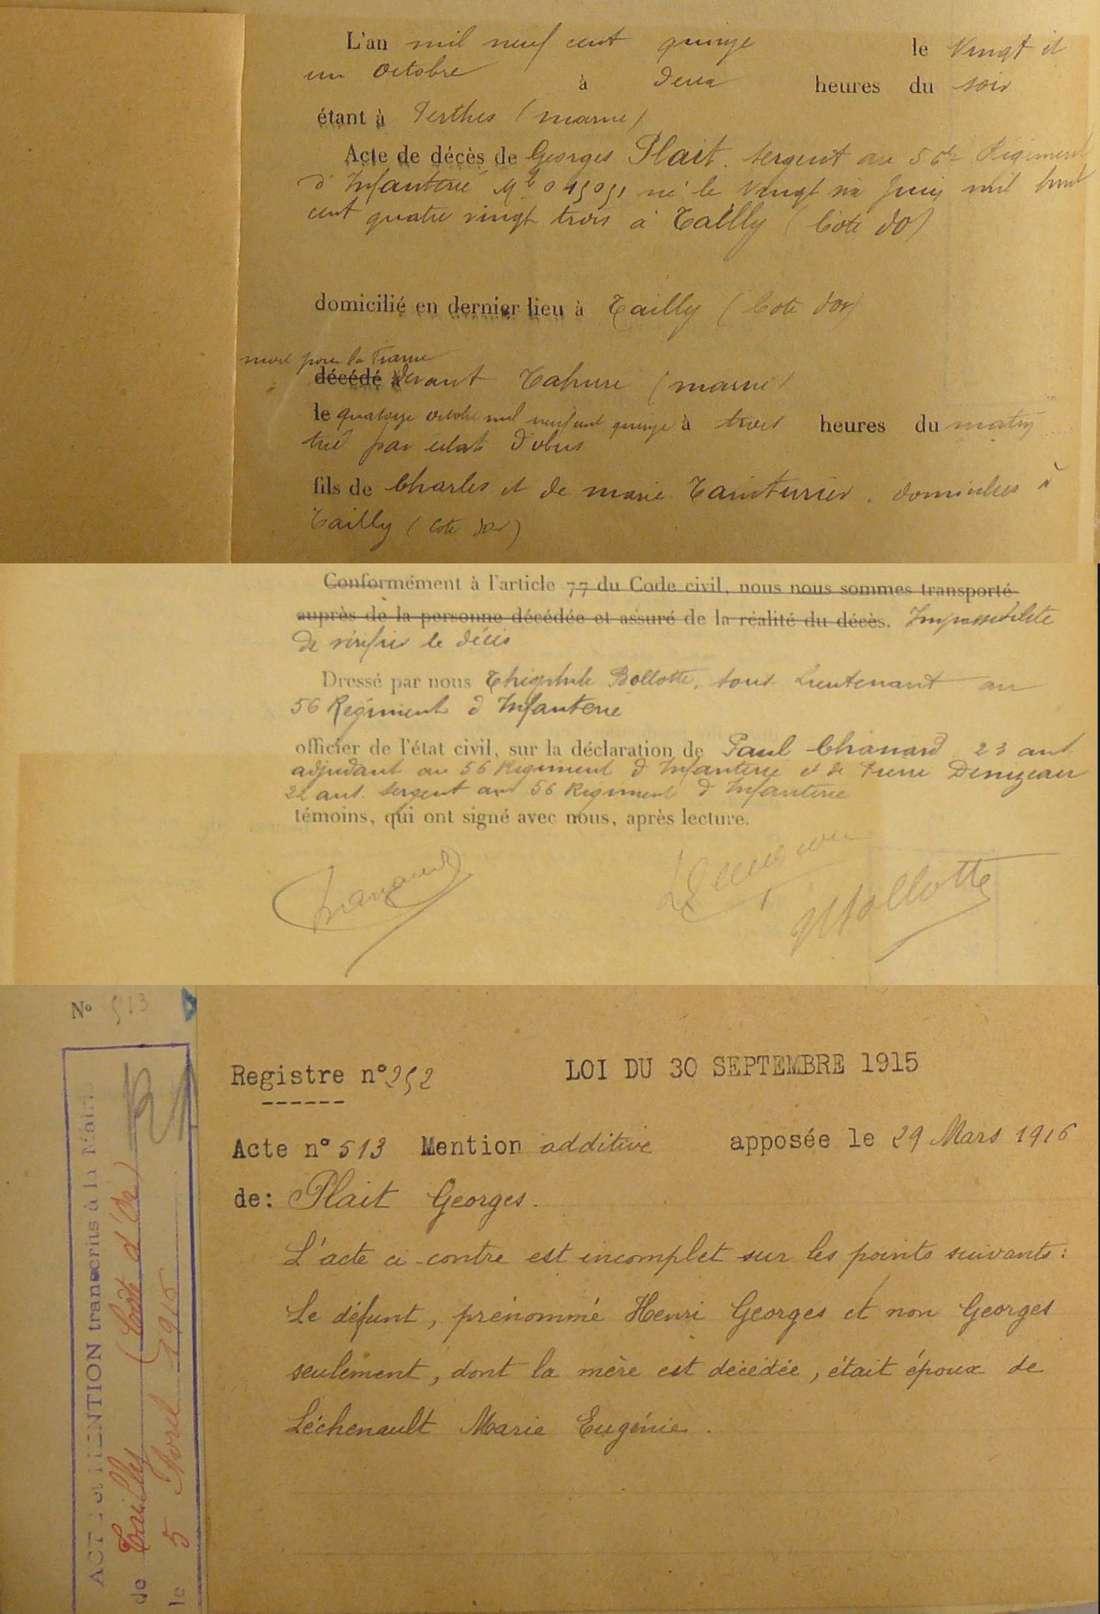 L'an mil neuf cent quinze le Vingt et
un Octobre à Deux heures du soir
étant à Perthes (marne)
Acte de décès de Georges Plait. Sergent au 56e Régiment
d'Infanterie né le Vingt six Juin mil huit
cent quatre vingt trois à Tailly (Cote dO)
domicilié en dernier lieu à Tailly (Cote dOr)
mort pour la France
décédé à Devant Tahure (marne)
le quatorze octobre mil neuf cent quinze à trois heures du matin
tué par éclat d'obus
fils de Charles et de marie Tainturier. domiciliés à
Tailly (Cote dOr)
Conformément à l'article 77 du Code civil, nous nous sommes transporté
auprès de la personne décédée et assuré de la réalité du décès. Impossibilité
de vérifier le décès
Dressé par nous Théophile Bollotte, sous Lieutenant au
56 Régiment d'Infanterie
officier de l'état civil, sur la déclaration de Paul Chanard 23 ans
adjudant au 56 Régiment d'Infanterie et de Pierre Denizeau
22 ans. Sergent au 56 Régiment d'Infanterie
témoins, qui ont signé avec nous, après lecture.
No 513
Registre n° 252 LOI DU 30 SEPTEMBRE 1915
Acte n° 513 Mention additive apposée le 29 Mars 1916
de: Plait Georges.
L'acte ci-contre est incomplet sur les points suivants:
Le défunt, prénommé Henri Georges et non Georges
seulement, dont la mère est décédée, était époux de
Léchenault Marie Eugénie.
ACTE et MENTION transcrits à la Mairie
de Tailly (Côte d'Or)
le 5 Avril 1916